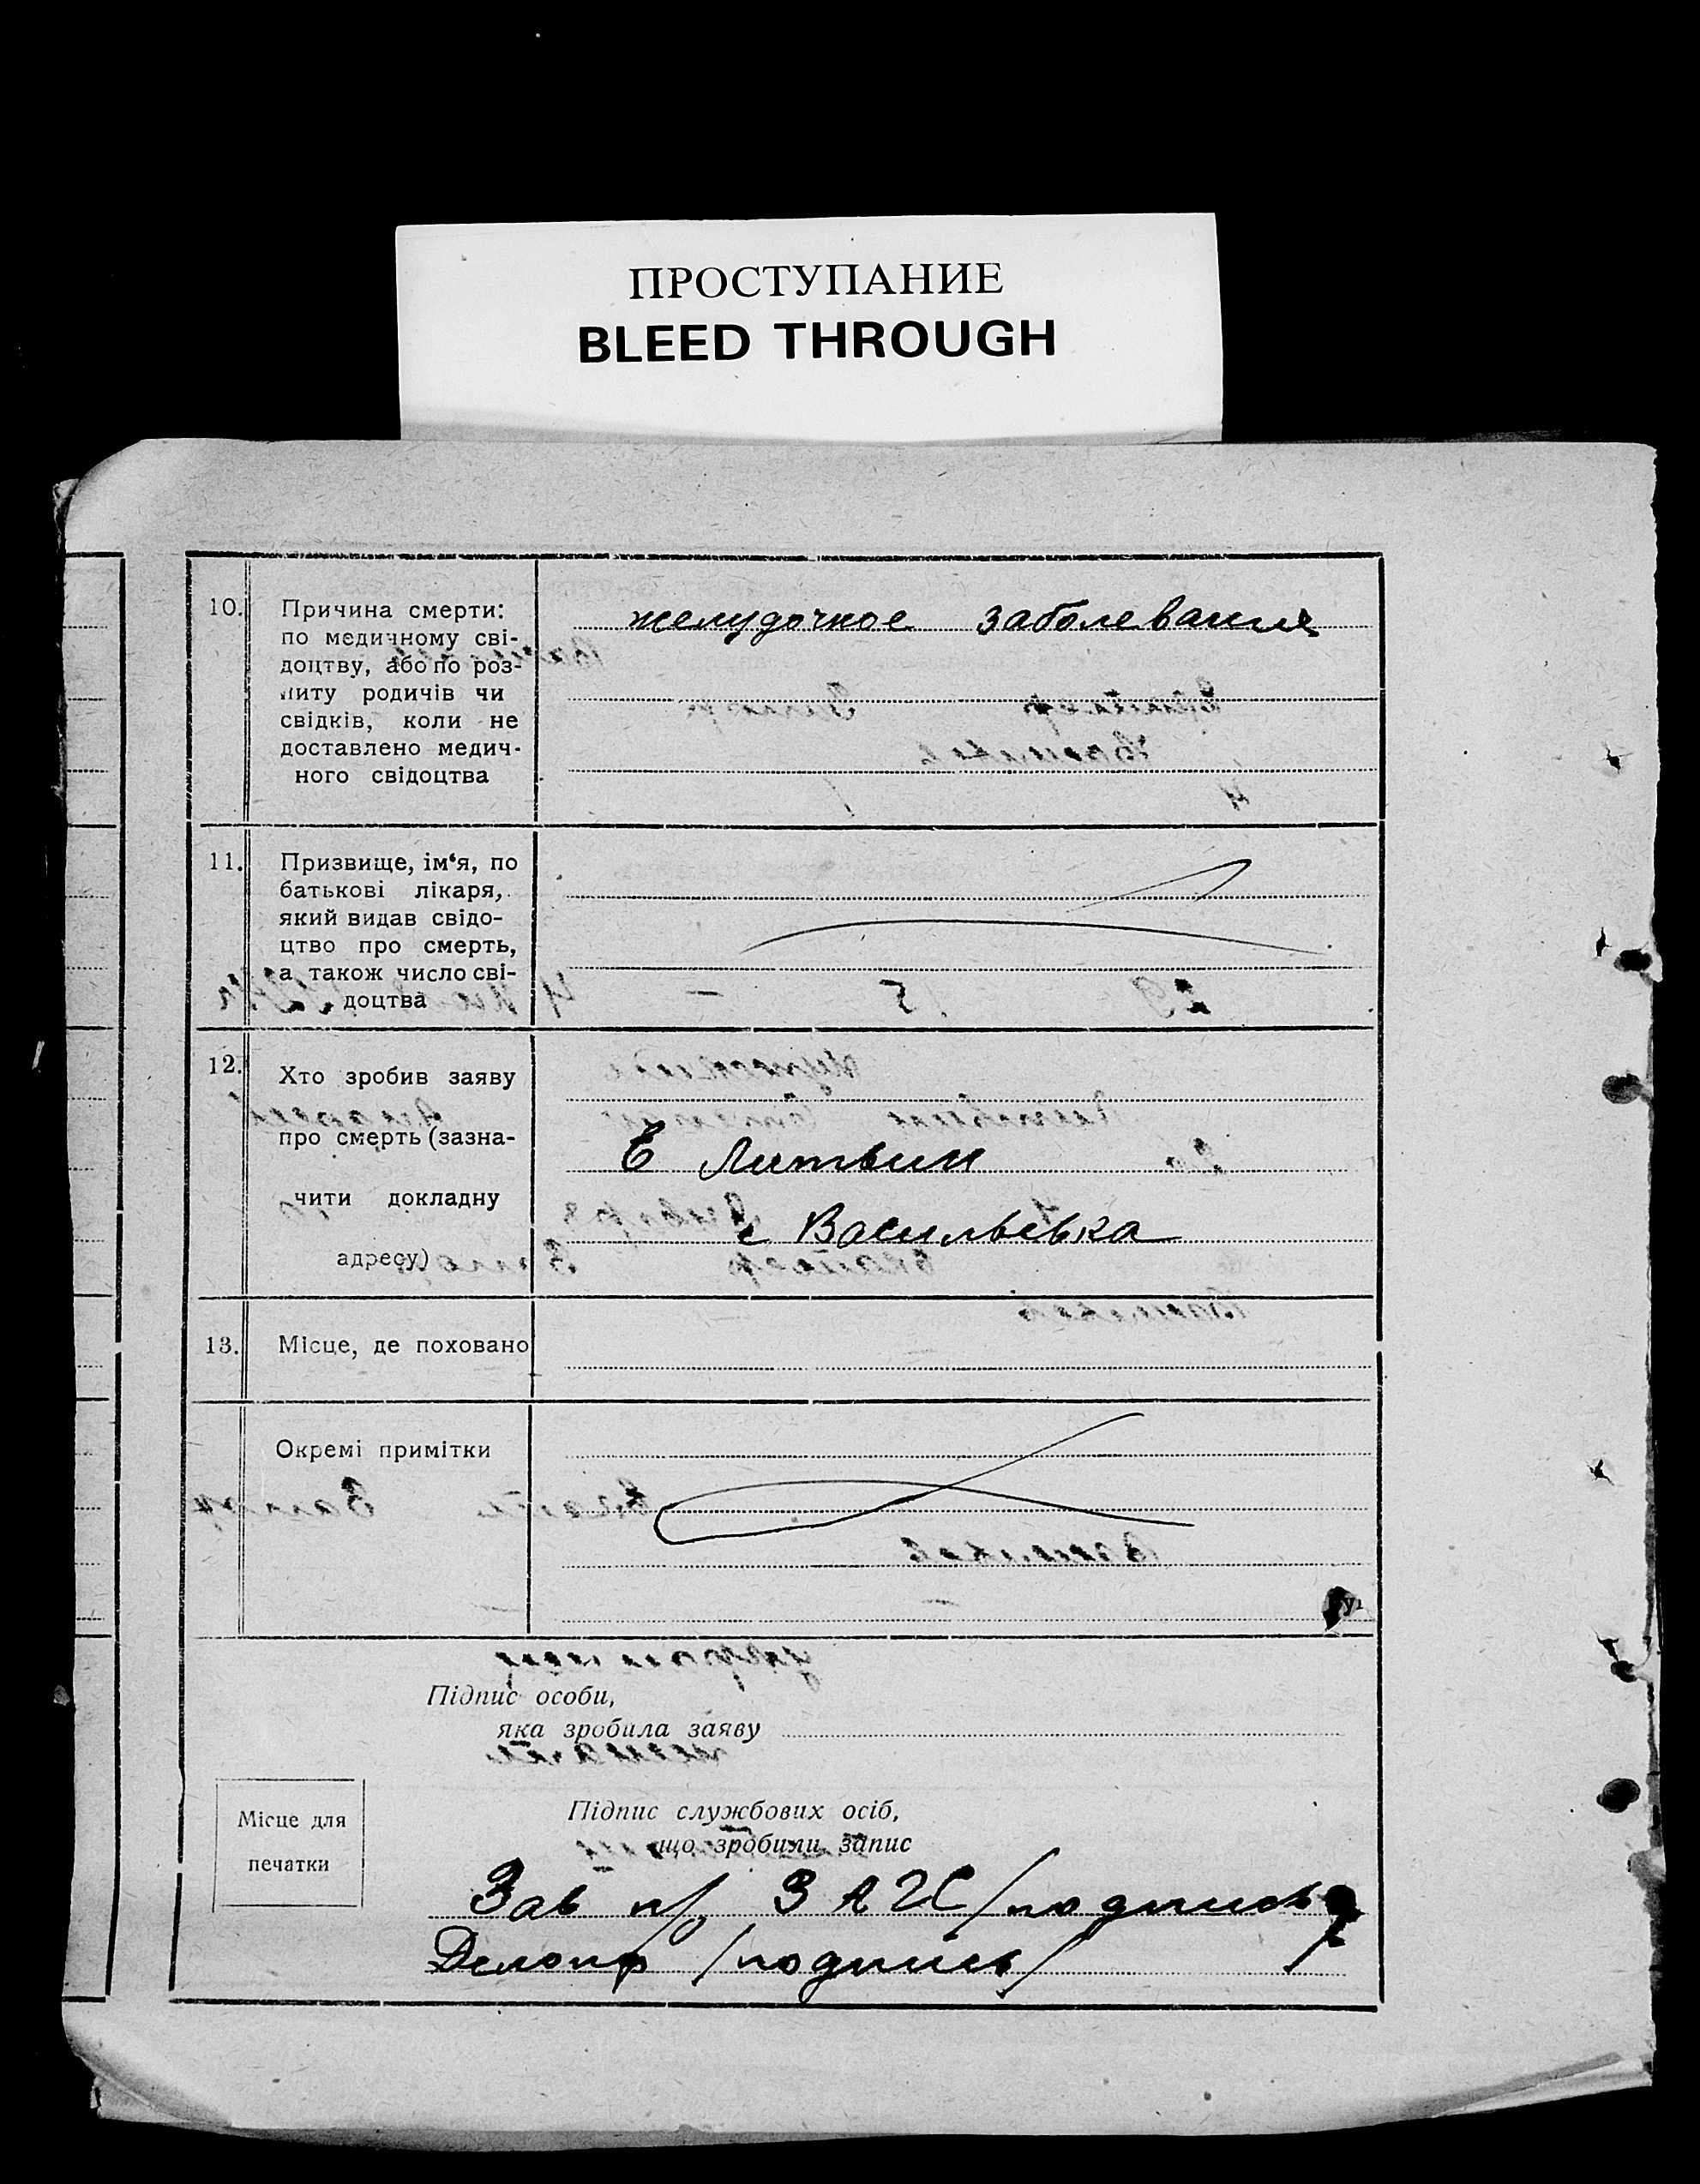 ПРОСТУПАНИЕ
BLEED THROUGH
10.
Причина смерти:
по медичному сві-
доцтву, або по роз-
питу родичів чи
свідків, коли не
доставлено медич-
ного свідоцтва
желудочное заболевания
11.
Призвище, ім‘я, по
батькові лікаря,
який видав свідо-
цтво про смерть,
а також число сві-
доцтва
12.
Хто зробив заяву
про смерть (зазна-
чити докладну
адресу)
Е Литвин
с Васильевка
13.
Місце, де поховано
Окремі примітки
Підпис особи,
яка зробила заяву
Місце для
печатки
Підпис службових осіб,
що зробили запис
Зав п/р ЗАГС /подпись
Делопр /подпись/